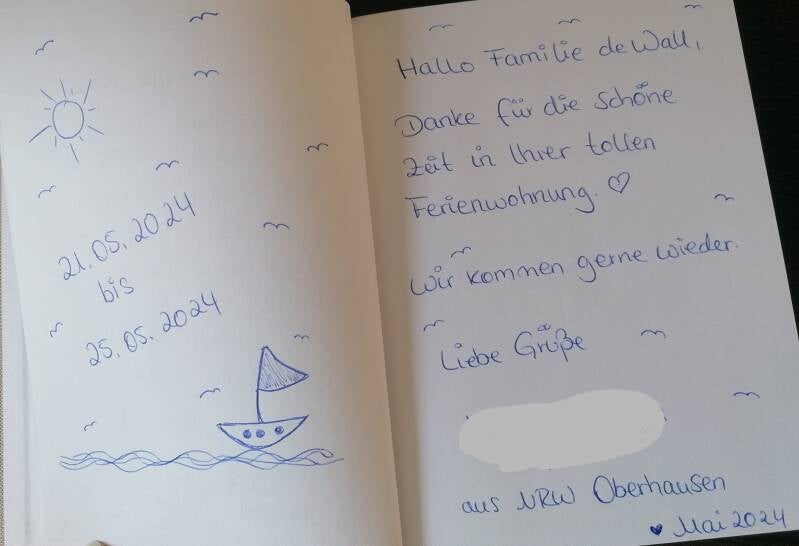 21.05.2024
bis
25.05.2024
Hallo Familie de Wall,
Danke für die schöne
Zeit in Ihrer tollen
Ferienwohnung. ♡
Wir kommen gerne wieder.
Liebe Grüße
aus NRW Oberhausen
♥ Mai 2024